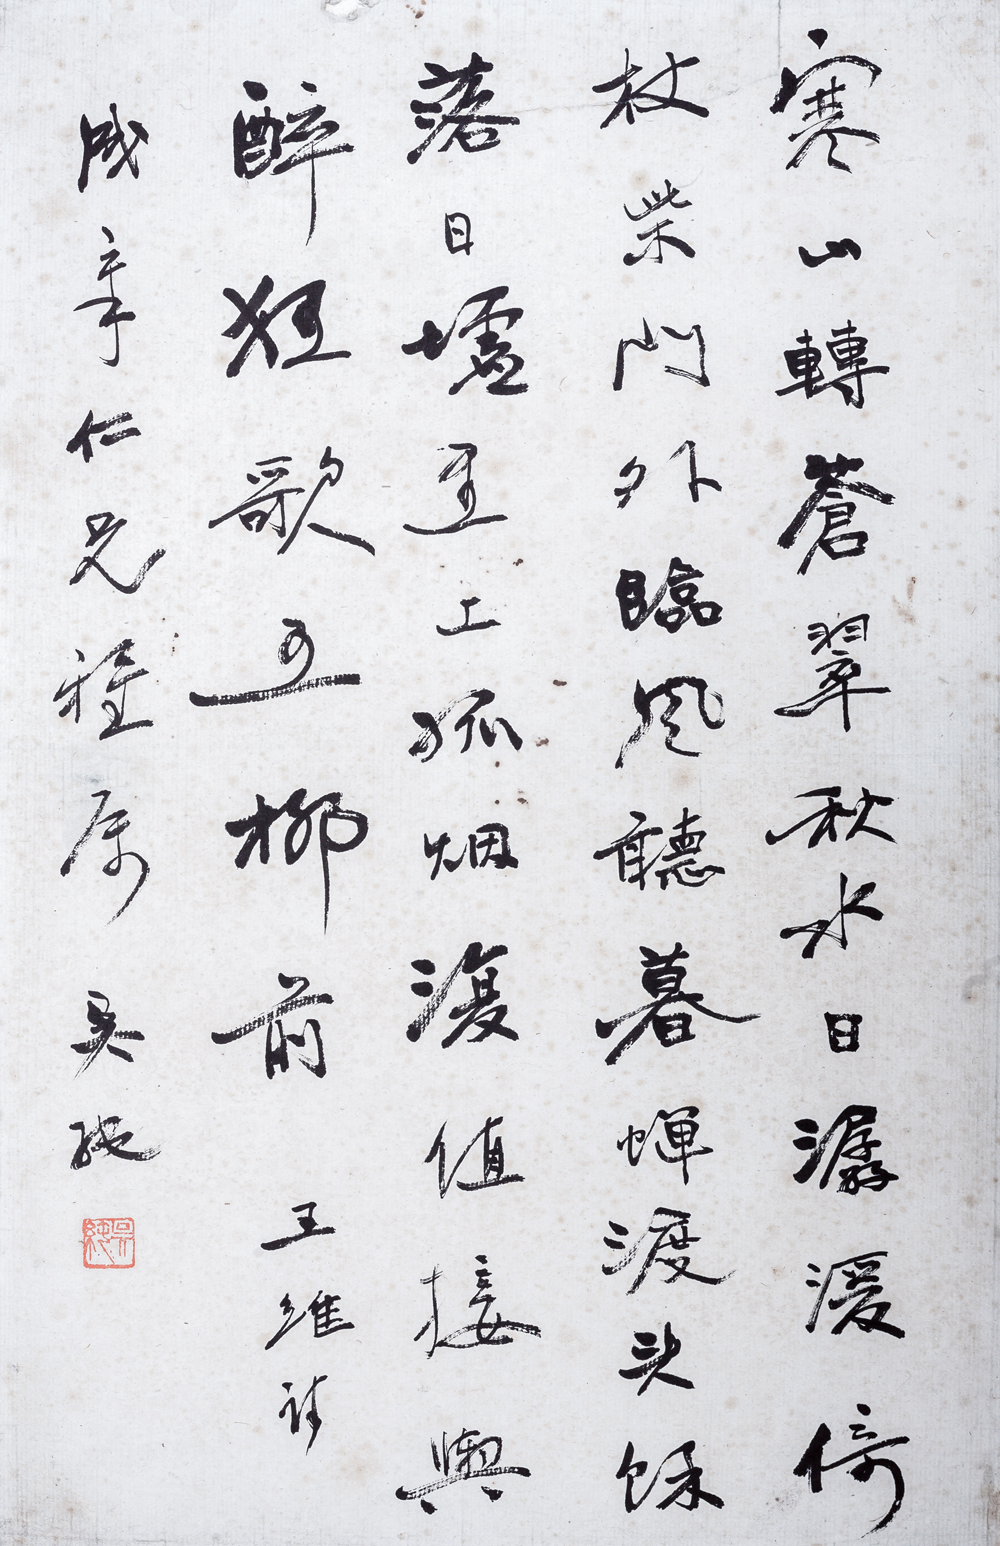 寒山轉蒼翠秋水日潺湲倚
杖柴門外臨風聽暮蟬渡头餘
落日墟里上孤烟復值接輿
醉狂歌五柳前 王維詩
成章仁兄雅属 吴純
吳純